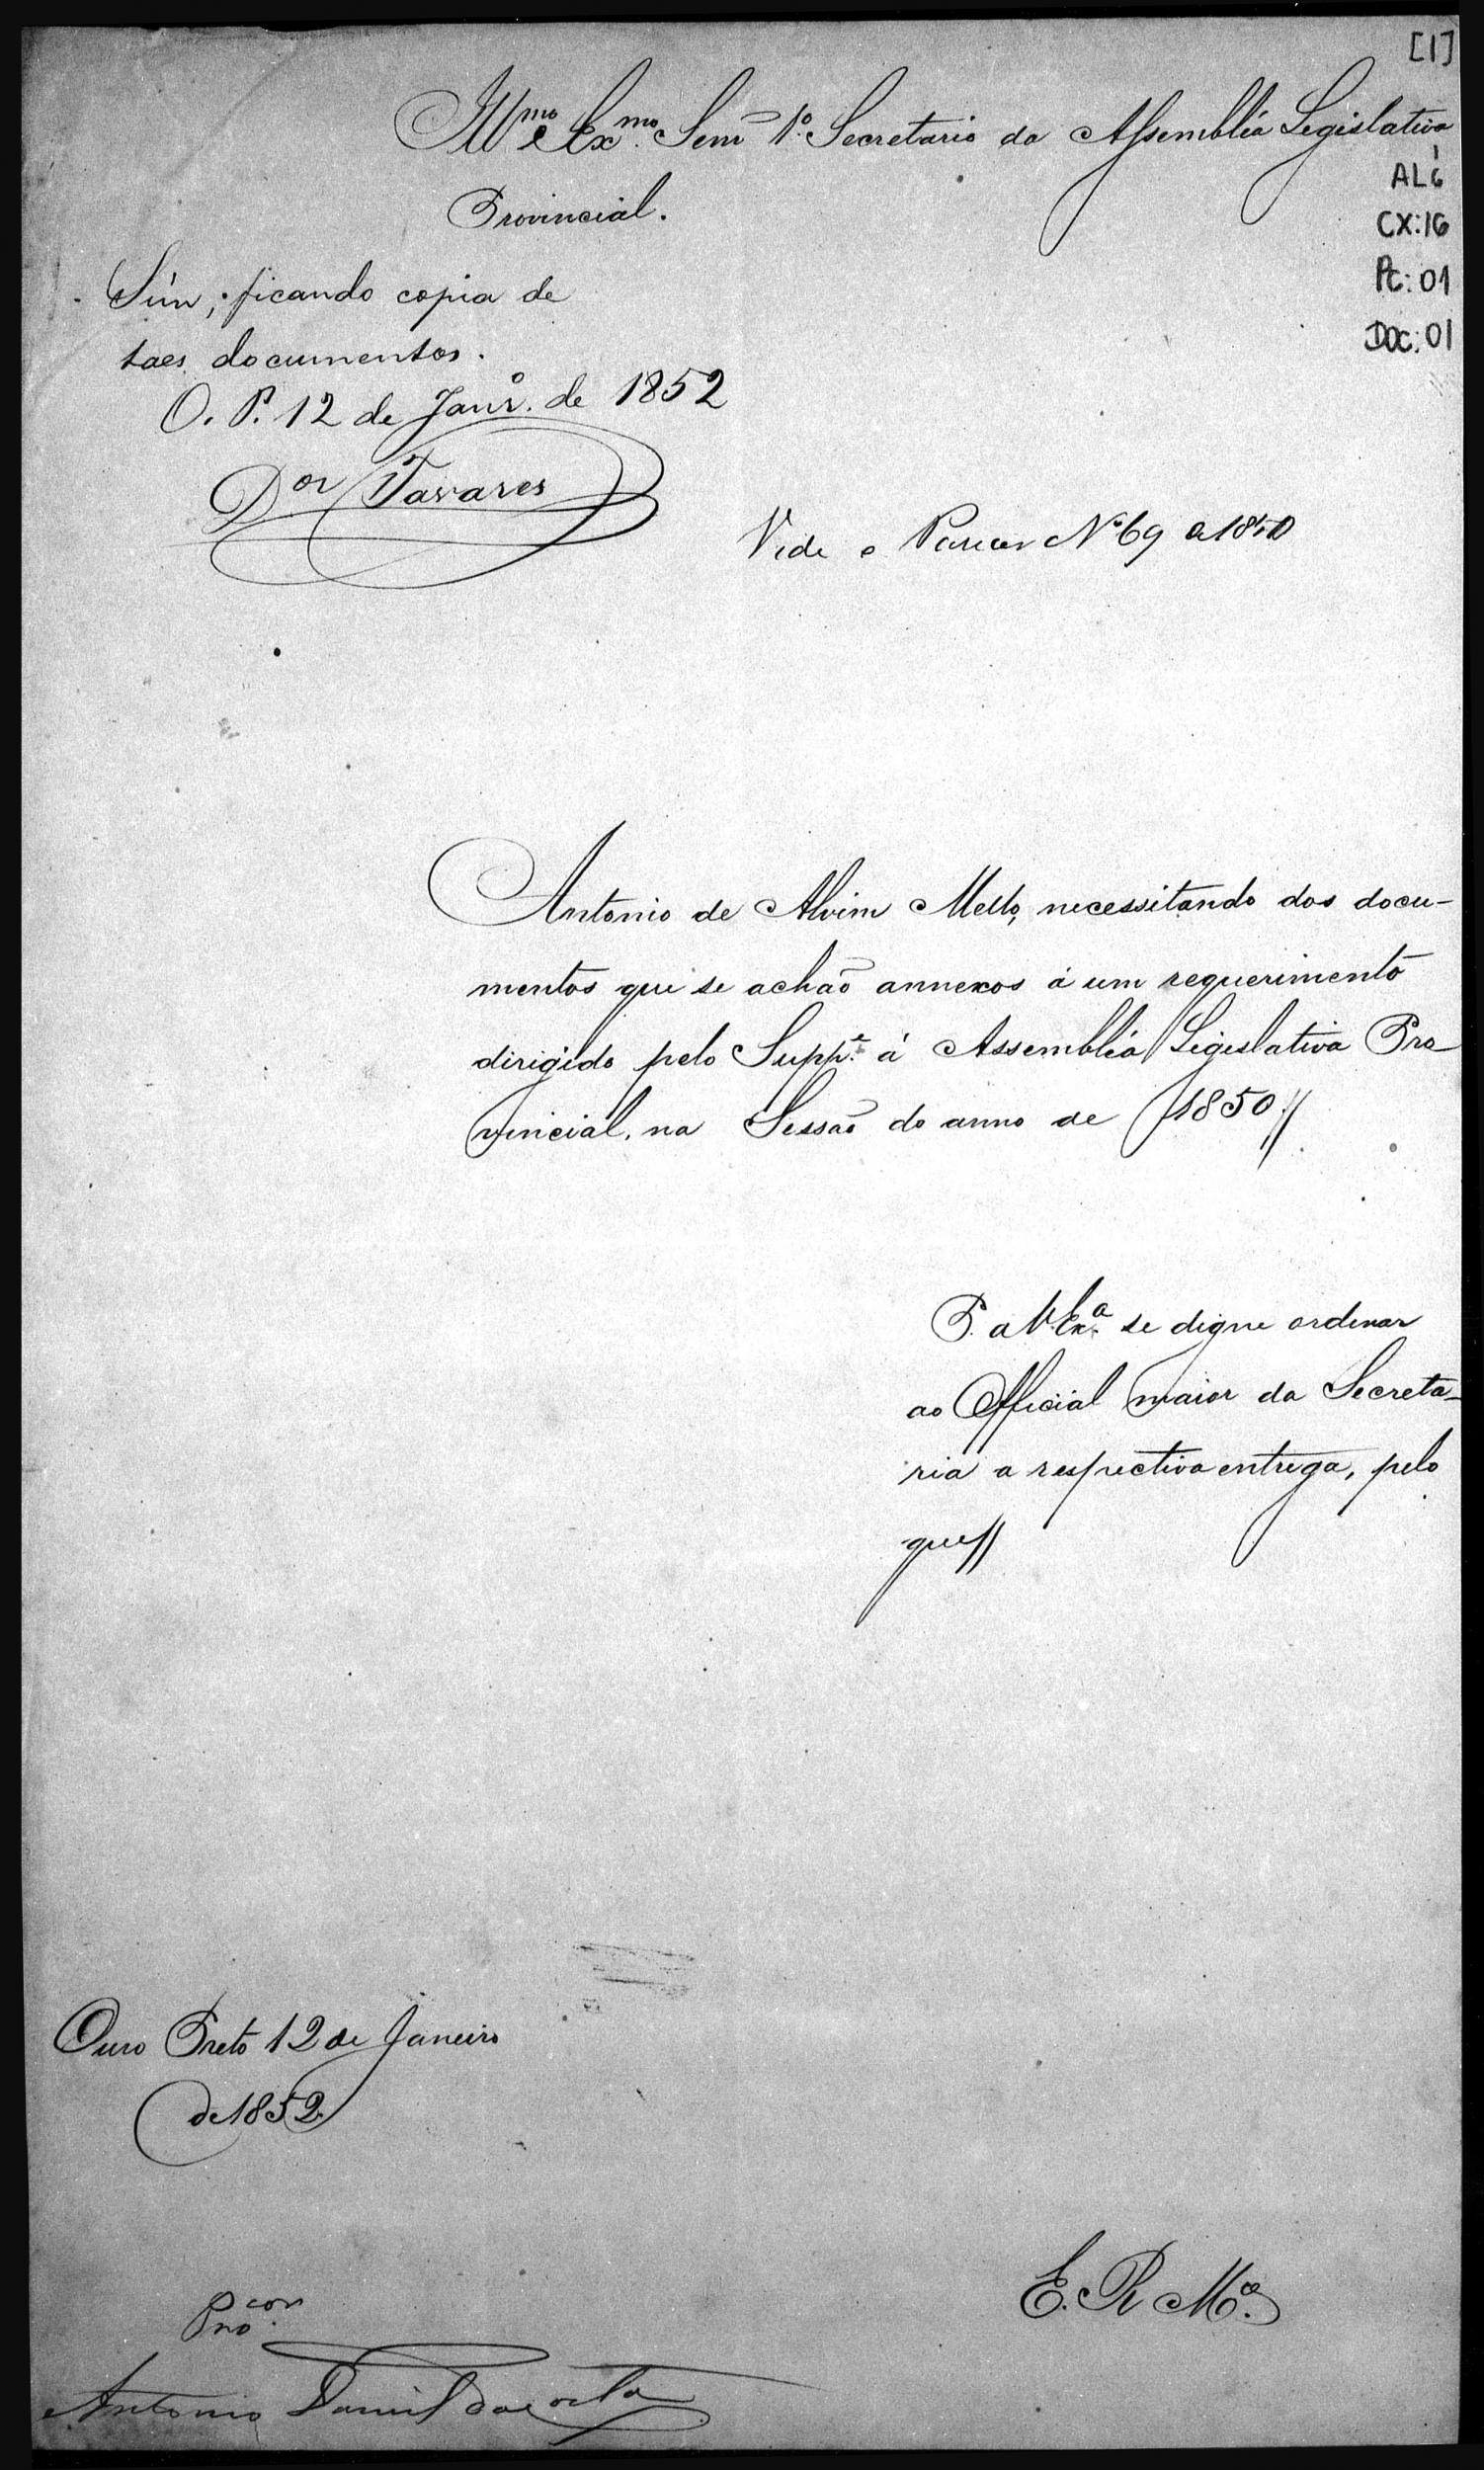 [1]
Illmo e Exmo. Senr 1º. Secretario da Assembléa Legislativa
Provincial.
AL6
CX:16
PC:01
DOC:01
Sim; ficando copia de
taes documentos.
O. P. 12 de Janro. de 1852
Dor Tavares
Vide o Parecer Nº 69 a 1850
Antonio de Alvim Mello, necessitando dos docu-
mentos que se achaõ annexos á um requerimento
dirigido pelo Suppe. á Assembléa Legislativa Pro-
vincial, na Sessaõ do anno de 1850//.
P. a V. Exa. se digne ordenar
ao Official maior da Secreta-
ria a respectiva entrega, pelo
que//
Ouro Preto 12 de Janeiro
de 1852.
E. R Mce.
Procor.
Antonio